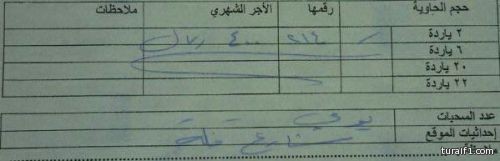 حجم الحاوية رقمها الأجر الشهري ملاحظات
٢ ياردة ٢١٤ ٤٠٠ ريال
٦ ياردة
٢٠ ياردة
٢٢ ياردة
عدد السحبات يومي
إحداثيات الموقع شارع مكة
turaif1.com